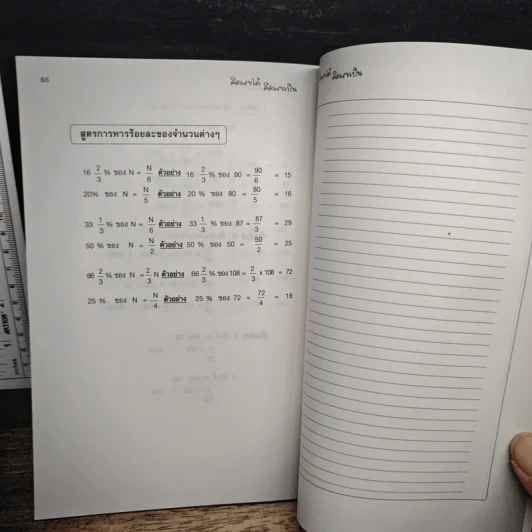 86
คิดเลขได้ คิดเลขเป็น
สูตรการหารร้อยละของจำนวนต่างๆ
16 2/3 % ของ N = N/6 ตัวอย่าง 16 2/3 % ของ 90 = 90/6 = 15
20% ของ N = N/5 ตัวอย่าง 20 % ของ 80 = 80/5 = 16
33 1/3 % ของ N = N/6 ตัวอย่าง 33 1/3 % ของ 87 = 87/3 = 29
50 % ของ N = N/2 ตัวอย่าง 50 % ของ 50 = 50/2 = 25
66 2/3 % ของ N = 2/3 N ตัวอย่าง 66 2/3 % ของ 108 = 2/3 x 108 = 72
25 % ของ N = N/4 ตัวอย่าง 25 % ของ 72 = 72/4 = 18
คิดเลขเป็น